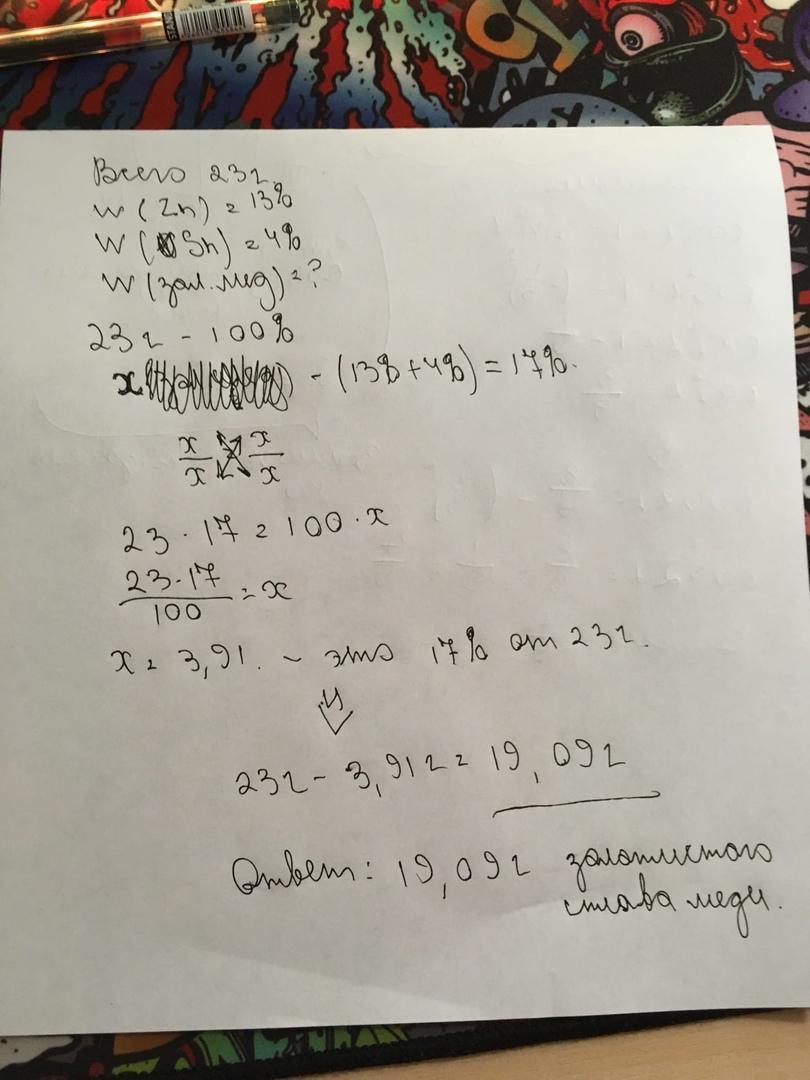 Всего 23г.
w (Zn) = 13%
w (Sn) = 4%
w (зол. мед) = ?
23г - 100%
x - (13% + 4%) = 17%.
x x
x x
23 · 17 = 100 · x
23·17
100 = x
x = 3,91. - это 17% от 23г.
23г - 3,91г = 19,09г
Ответ: 19,09г золотистого
сплава меди.